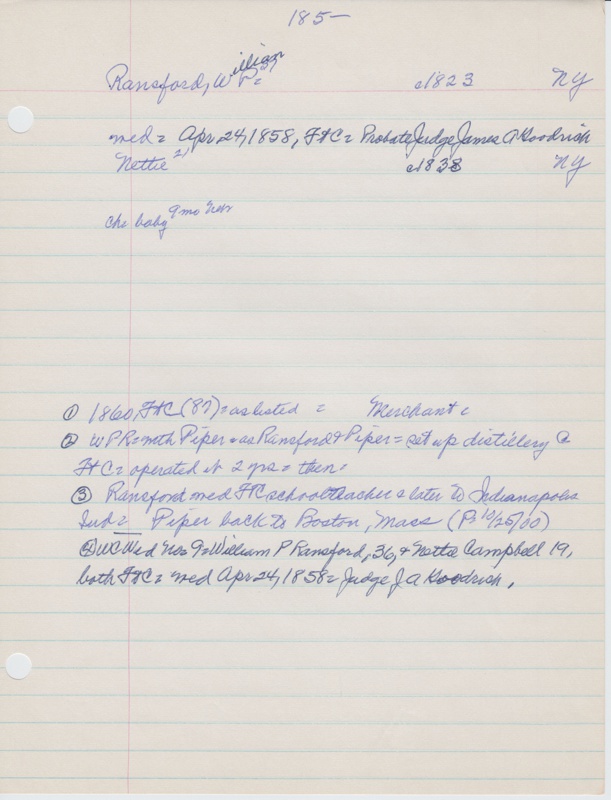 185—
Ransford, William P = 37 c1823 NY
med = Apr 24, 1858, FtC = Probate Judge James A Goodrich
Nettie 21 c1838 NY
ch = baby 9 mo Neb
① 1860, FtC (87) = as listed = Merchant =
② WPR = with Piper = as Ransford & Piper = set up distillery @
FtC = operated it 2 yrs = then =
③ Ransford med FtC school teacher & later to Indianapolis
Ind = Piper back to Boston, Mass (P= 10/25/00)
④ WCWed Nos 9 = William P Ransford, 36, & Nettie Campbell 19,
both FtC = med Apr 24, 1858 = Judge J A Goodrich.